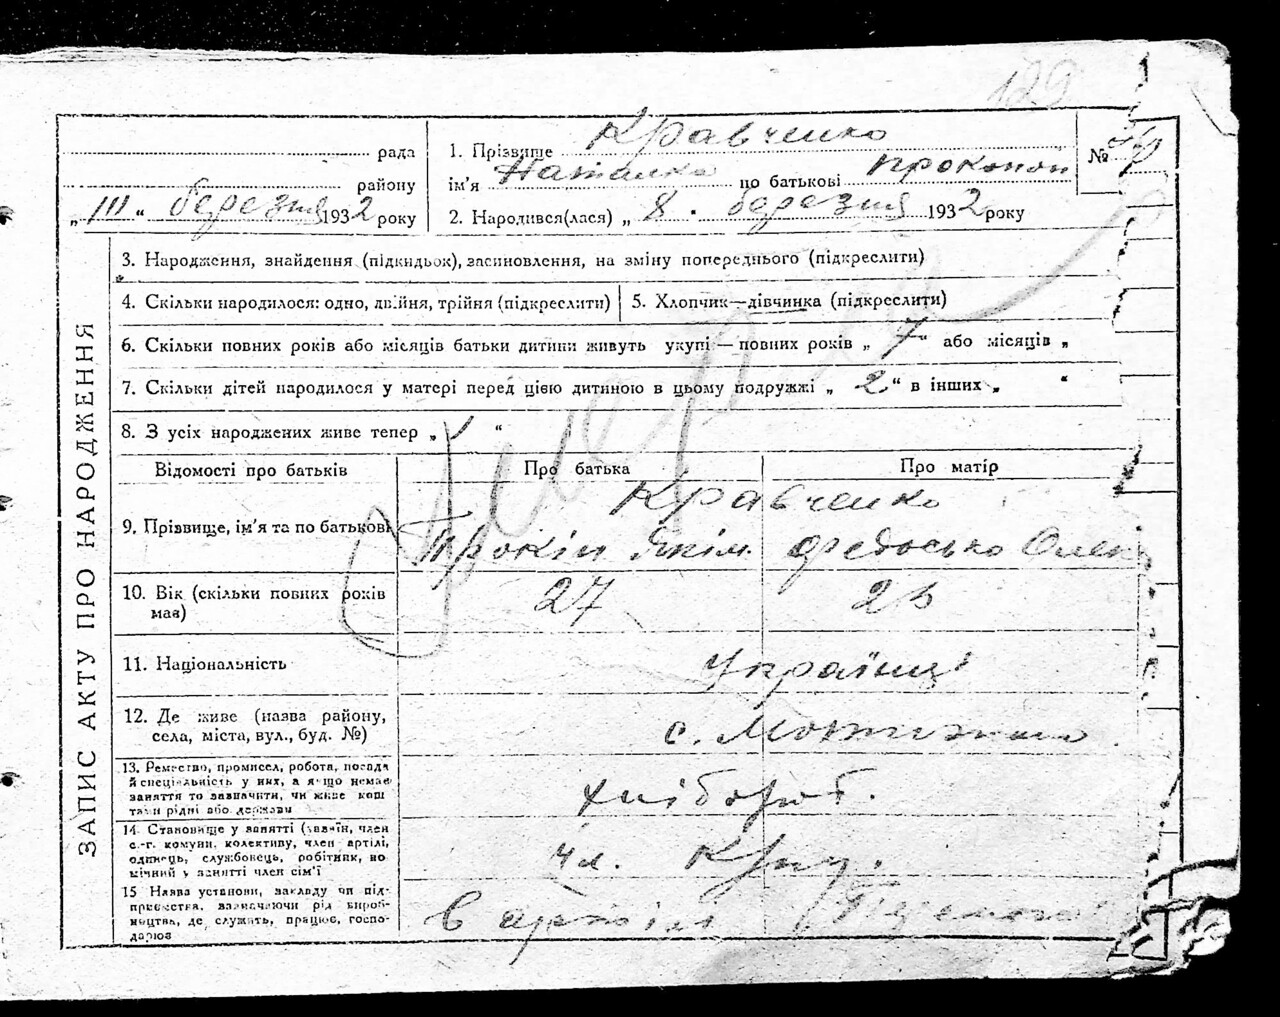 129
Кравченко
рада
1. Прізвище
№
Наталка
Прокопов
району
ім'я по батькові
„ III " березня 1932 року
2. Народився(лася) „ 8 " березня 1932 року
ЗАПИС АКТУ ПРО НАРОДЖЕННЯ
3. Народження, знайдення (підкидьок), засиновлення, на зміну попереднього (підкреслити)
4. Скільки народилося: одно, двійня, трійня (підкреслити)
5. Хлопчик—дівчинка (підкреслити)
6. Скільки повних років або місяців батьки дитини живуть укупі — повних років „ 7 " або місяців „
7. Скільки дітей народилося у матері перед цією дитиною в цьому подружжі „ 2 " в інших „ "
8. З усіх народжених живе тепер „ 1 "
Умерла
Відомості про батьків
Про батька
Про матір
Кравченко
9. Прізвище, ім'я та по батькові
Прокіп Якім. Федоська Олек
10. Вік (скільки повних років
має)
27
11. Національність
Українці
12. Де живе (назва району,
села, міста, вул., буд. №)
с.
13. Ремество, промисел, робота, посада
й спеціяльність у них, а якщо немає
заняття то зазначити, чи живе кош
тами рідні або держави
хлібороб.
14 Становище у занятті (хазяїн, член
с.-г. комуни, колективу, член артілі,
одинець, службовець, робітник, по
мічний у занятті член сім'ї
чл.
15 Назва установи, закладу чи під-
приємства, зазначаючи рід вироб-
ництва, де служить, працює, госпо-
дарює
в артіл